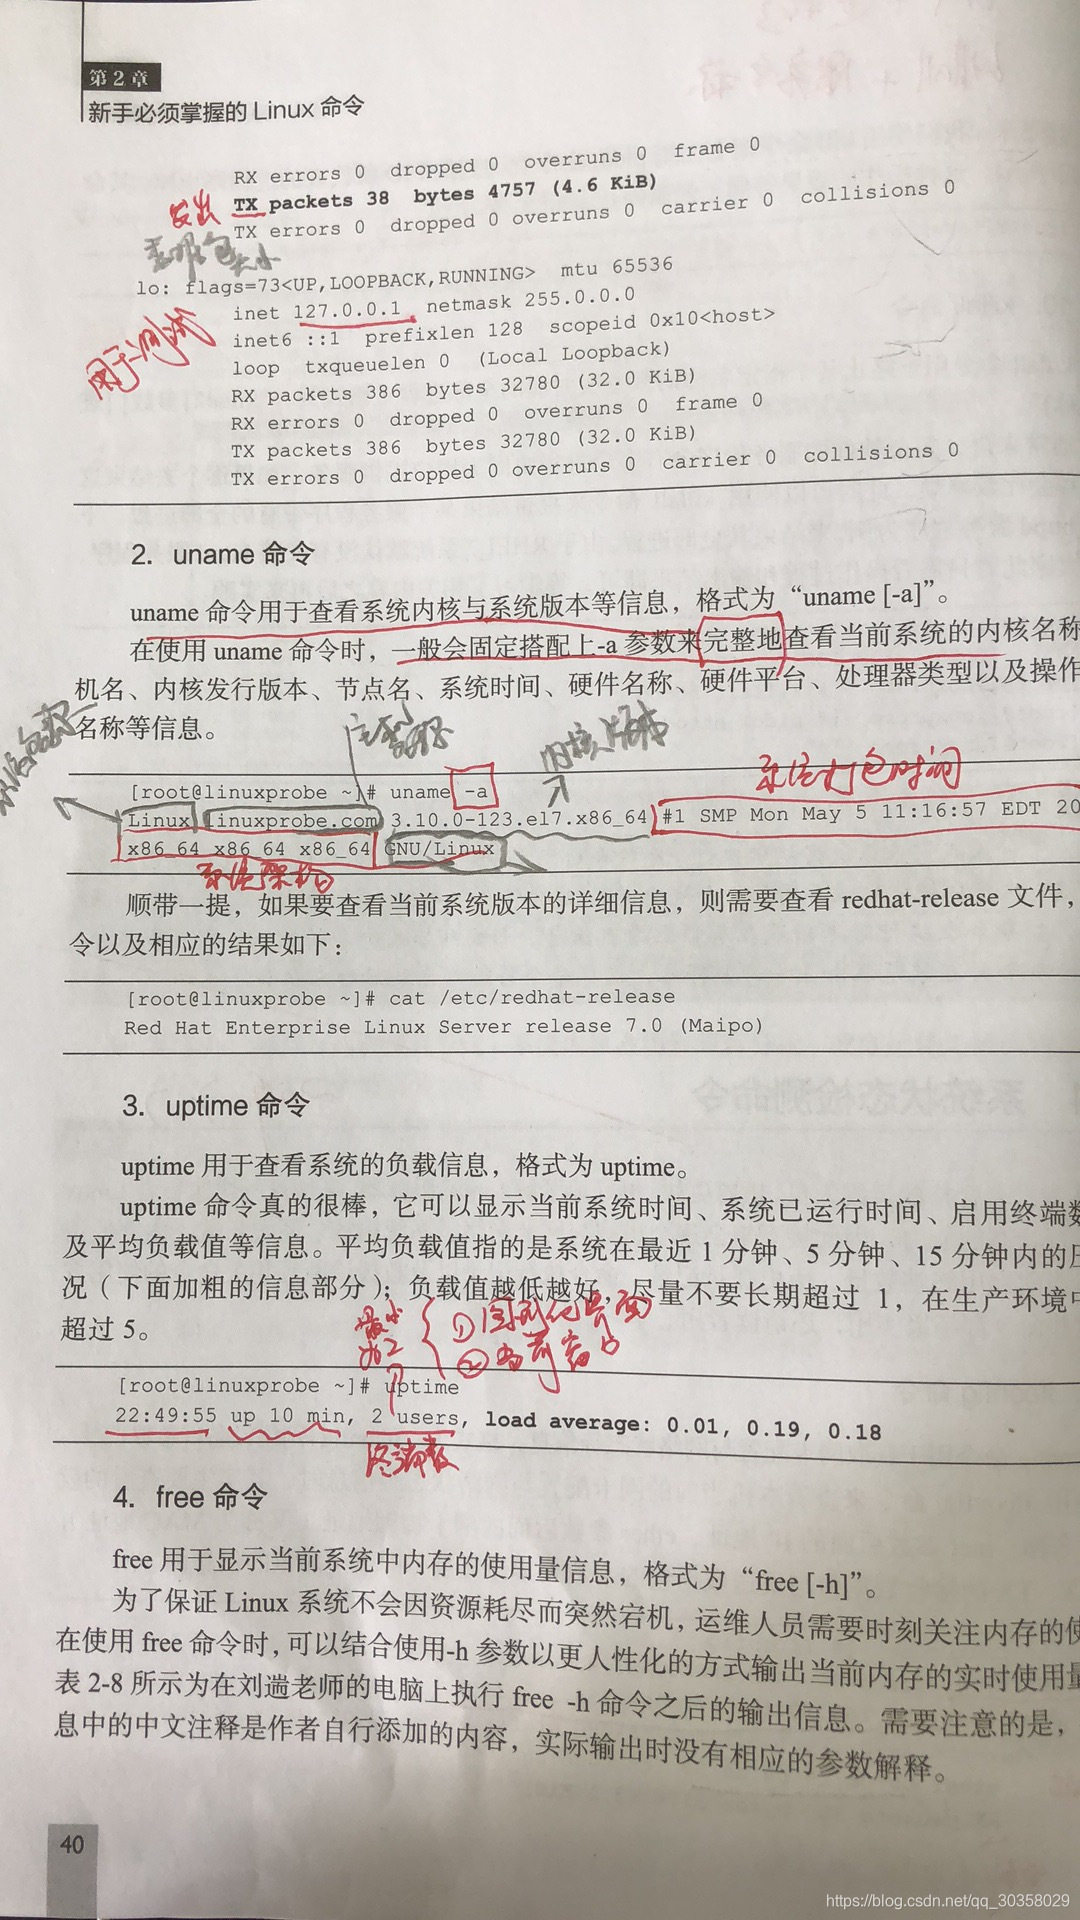 第2章
新手必须掌握的 Linux 命令
RX errors 0 dropped 0 overruns 0 frame 0
发出 TX packets 38 bytes 4757 (4.6 KiB)
TX errors 0 dropped 0 overruns 0 carrier 0 collisions 0
lo: flags=73<UP,LOOPBACK,RUNNING> mtu 65536
inet 127.0.0.1 netmask 255.0.0.0
用于测试
inet6 ::1 prefixlen 128 scopeid 0x10<host>
loop txqueuelen 0 (Local Loopback)
RX packets 386 bytes 32780 (32.0 KiB)
RX errors 0 dropped 0 overruns 0 frame 0
TX packets 386 bytes 32780 (32.0 KiB)
TX errors 0 dropped 0 overruns 0 carrier 0 collisions 0
2. uname 命令
uname 命令用于查看系统内核与系统版本等信息，格式为“uname [-a]”。
在使用 uname 命令时，一般会固定搭配上-a 参数来完整地查看当前系统的内核名称
机名、内核发行版本、节点名、系统时间、硬件名称、硬件平台、处理器类型以及操作
名称等信息。
内核版本
系统打包时间
[root@linuxprobe ~]# uname -a
Linux linuxprobe.com 3.10.0-123.el7.x86_64 #1 SMP Mon May 5 11:16:57 EDT 20
x86_64 x86_64 x86_64 GNU/Linux
系统架构
顺带一提，如果要查看当前系统版本的详细信息，则需要查看 redhat-release 文件，
令以及相应的结果如下：
[root@linuxprobe ~]# cat /etc/redhat-release
Red Hat Enterprise Linux Server release 7.0 (Maipo)
3. uptime 命令
uptime 用于查看系统的负载信息，格式为 uptime。
uptime 命令真的很棒，它可以显示当前系统时间、系统已运行时间、启用终端数
及平均负载值等信息。平均负载值指的是系统在最近 1 分钟、5 分钟、15 分钟内的压
况（下面加粗的信息部分）；负载值越低越好，尽量不要长期超过 1，在生产环境中
超过 5。
最小为2
①图形化界面
②当前窗口
[root@linuxprobe ~]# uptime
22:49:55 up 10 min, 2 users, load average: 0.01, 0.19, 0.18
终端数
4. free 命令
free 用于显示当前系统中内存的使用量信息，格式为“free [-h]”。
为了保证 Linux 系统不会因资源耗尽而突然宕机，运维人员需要时刻关注内存的使
在使用 free 命令时，可以结合使用-h 参数以更人性化的方式输出当前内存的实时使用量
表 2-8 所示为在刘遄老师的电脑上执行 free -h 命令之后的输出信息。需要注意的是，
息中的中文注释是作者自行添加的内容，实际输出时没有相应的参数解释。
40
https://blog.csdn.net/qq_30358029